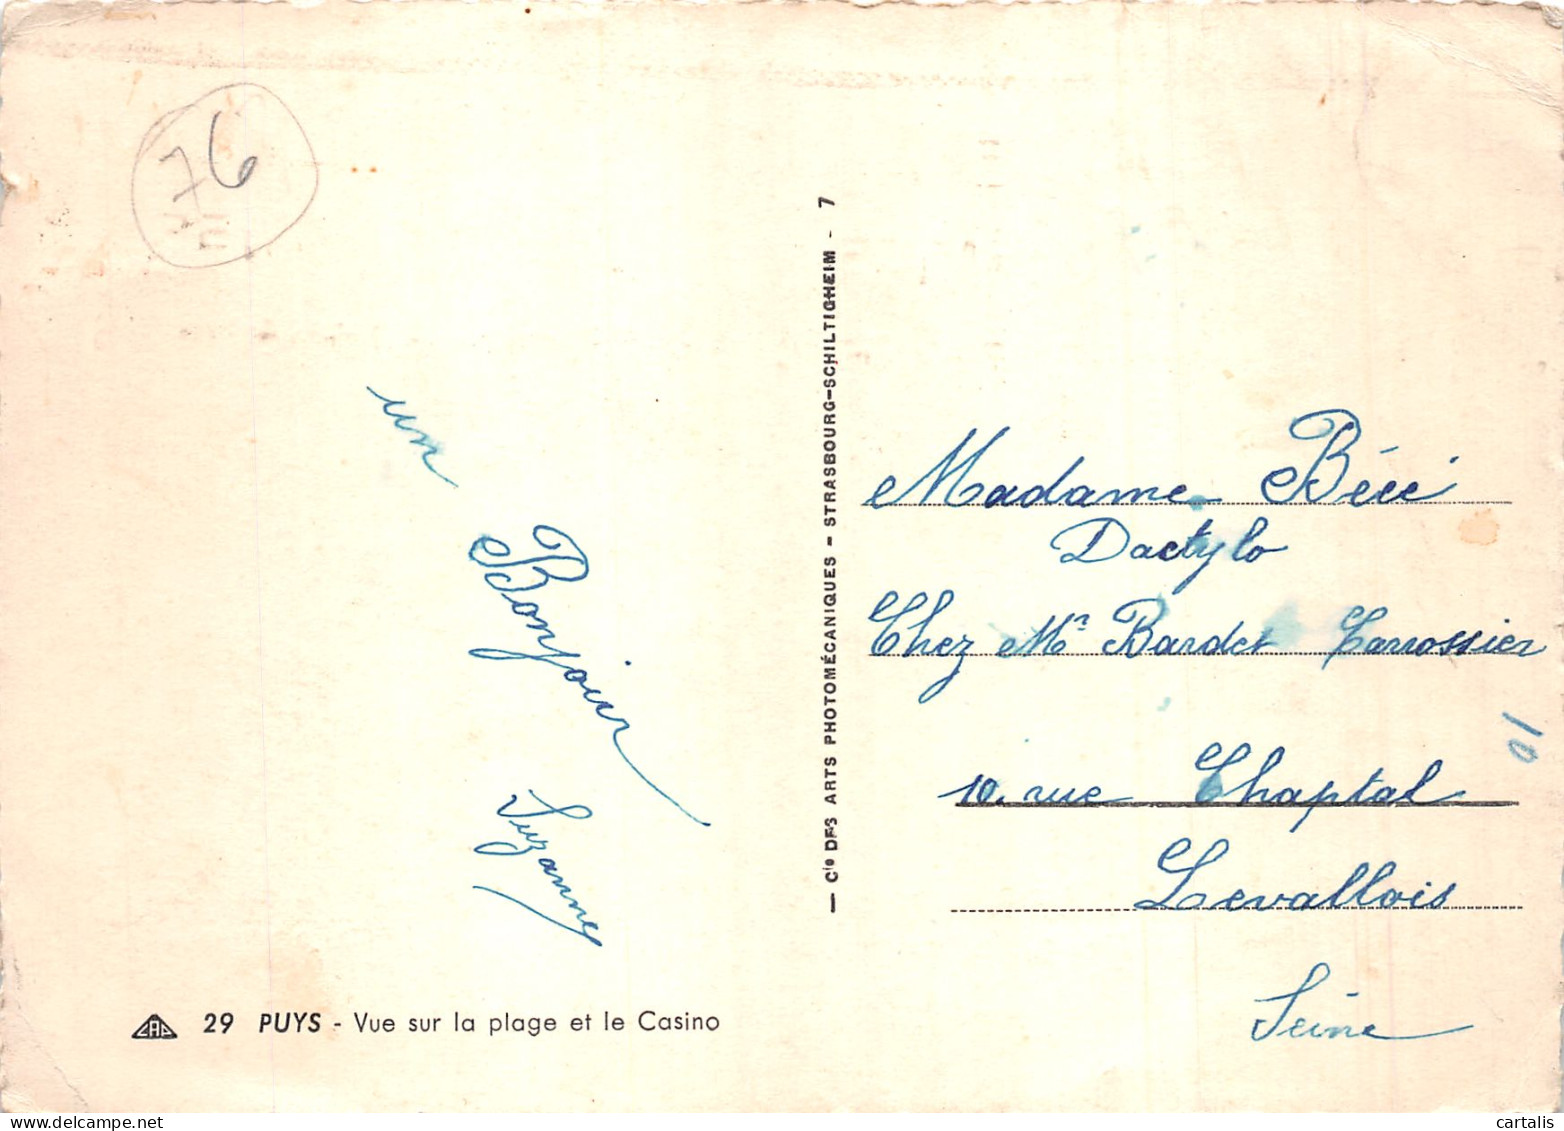 76
un
Bonjour
Suzanne
CAP 29 PUYS - Vue sur la plage et le Casino
— Cie DES ARTS PHOTOMÉCANIQUES - STRASBOURG-SCHILTIGHEIM - 7
Madame
Dactylo
Chez Mr Bardet Carrossier
10. rue Chaptal
10
Levallois
Seine
www.delcampe.net
cartalis